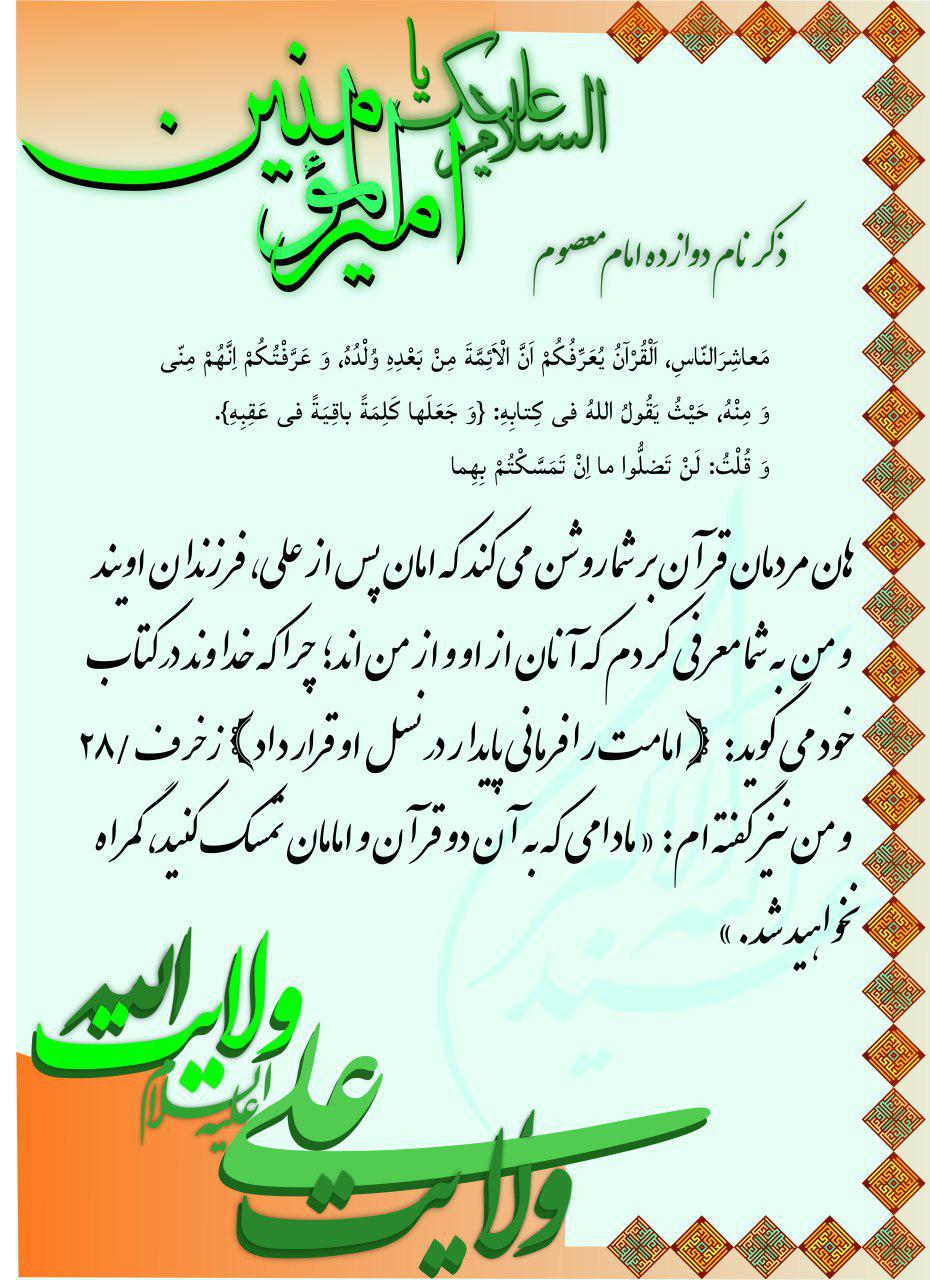 السلام علیک یا
امیرالمؤمنین
ذکر نام دوازده امام معصوم
مَعاشِرَالنّاسِ، اَلْقُرْآنُ یُعَرِّفُکُمْ اَنَّ الْاَئِمَّةَ مِنْ بَعْدِهِ وُلْدُهُ، وَ عَرَّفْتُکُمْ اِنَّهُمْ مِنّی
وَ مِنْهُ، حَیْثُ یَقُولُ اللهُ فی کِتابِهِ: {وَ جَعَلَها کَلِمَةً باقِیَةً فی عَقِبِهِ}.
وَ قُلْتُ: لَنْ تَضلُّوا ما اِنْ تَمَسَّکْتُمْ بِهِما
هان مردمان قرآن بر شما روشن می کند که امان پس از علی، فرزندان اویند
و من به شما معرفی کردم که آنان از او و از من اند؛ چرا که خداوند در کتاب
خود می گوید: ﴿امامت را فرمانی پایدار در نسل او قرار داد﴾ زخرف /۲۸
و من نیز گفته ام: «مادامی که به آن دو قرآن و امامان تمسک کنید، گمراه
نخواهید شد.»
ولایت الله
ولایت علی علیه السلام